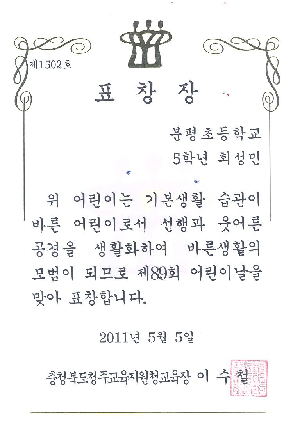 제1302호
표 창 장
분평초등학교
5학년 최성민
위 어린이는 기본생활 습관이
바른 어린이로서 선행과 웃어른
공경을 생활화하여 바른생활의
모범이 되므로 제89회 어린이날을
맞아 표창합니다.
2011년 5월 5일
충청북도청주교육지원청교육장 이 수 철